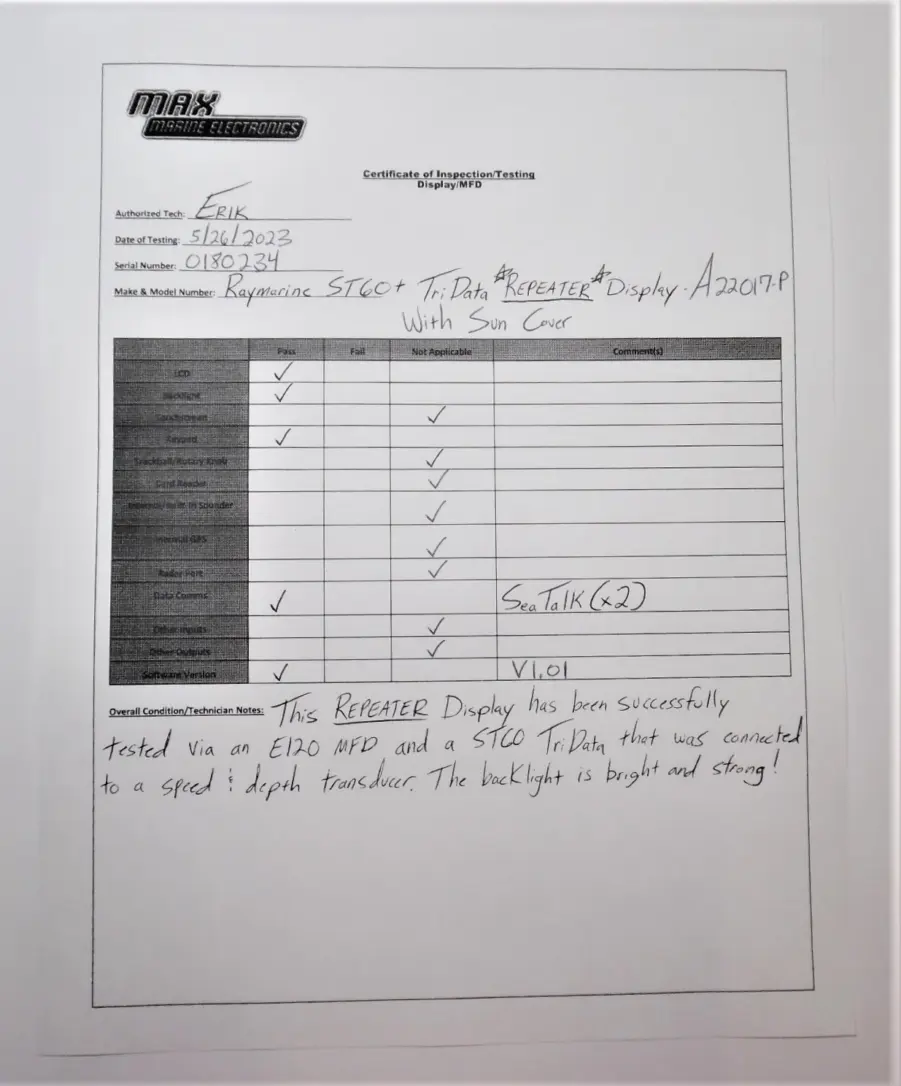 MAX
MARINE ELECTRONICS
Certificate of Inspection/Testing
Display/MFD
Authorized Tech: ERIK
Date of Testing: 5/26/2023
Serial Number: 0180234
Make & Model Number: Raymarine ST60+ TriData *REPEATER* Display - A22017-P
With Sun Cover
Pass Fail Not Applicable Comment(s)
LCD ✓
Backlight ✓
Touchscreen ✓
Keypad ✓
Trackball/Rotary Knob ✓
Card Reader ✓
Internal/Built-In Sounder ✓
Internal GPS ✓
Radar Port ✓
Data Comms ✓ SeaTalk (x2)
Other Inputs ✓
Other Outputs ✓
Software Version ✓ V1.01
Overall Condition/Technician Notes: This REPEATER Display has been successfully
tested via an E120 MFD and a ST60 TriData that was connected
to a speed & depth transducer. The backlight is bright and strong!